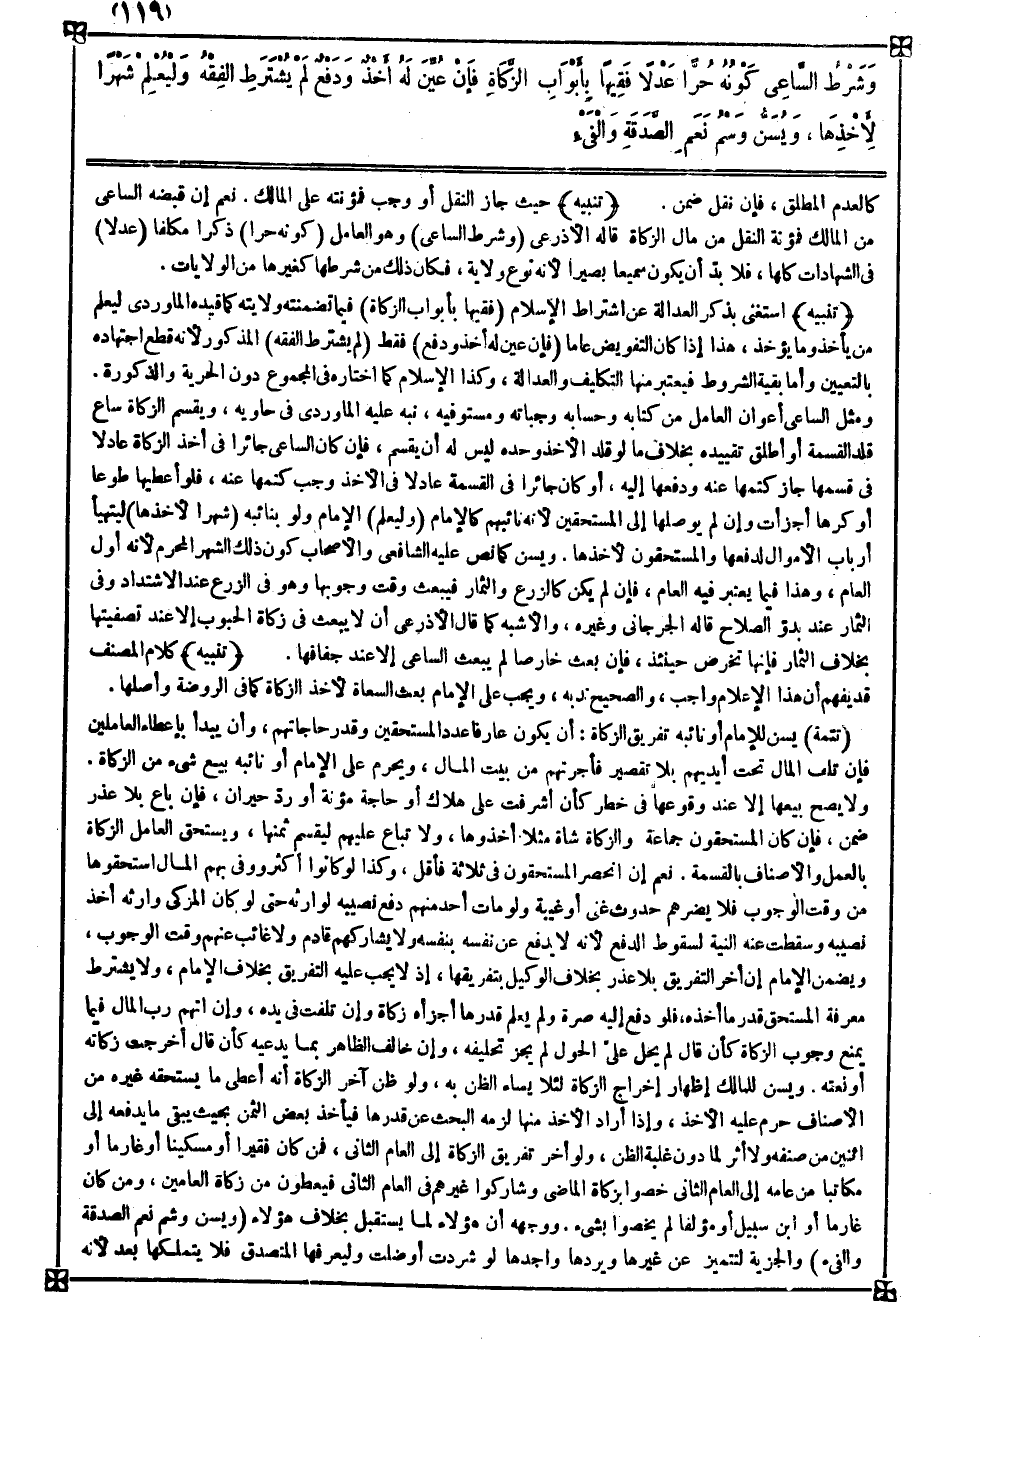 (١١٩)
وَشَرْطُ السَّاعِى كَوْنُهُ حُرًّا عَدْلًا فَقِيهًا بِأَبْوَابِ الزَّكَاةِ فَإِنْ عُيِّنَ لَهُ أَخْذٌ وَدَفْعٌ لَمْ يُشْتَرَطِ الْفِقْهُ وَلْيُعْلِمْ شَهْرًا
لِأَخْذِهَا ، وَيُسَنُّ وَسْمُ نَعَمِ الصَّدَقَةِ وَالْفَىْءِ
كالعدم المطلق ، فإن نقل ضمن . ﴿ تنبيه ﴾ حيث جاز النقل أو وجب فمؤنته على المالك . نعم إن قبضه الساعى
من المالك فمؤنة النقل من مال الزكاة قاله الأذرعى (وشرط الساعى) وهو العامل (كونه حرا) ذكرا مكلفا (عدلا)
فى الشهادات كلها ، فلا بدّ أن يكون سميعا بصيرا لأنه نوع ولاية ، فكان ذلك من شرطها كغيرها من الولايات .
﴿ تنبيه ﴾ استغنى بذكر العدالة عن اشتراط الإسلام (فقيها بأبواب الزكاة) فيما تضمنته ولايته كما قيده الماوردى ليعلم
من يأخذ وما يؤخذ ، هذا إذا كان التفويض عاما (فإن عين له أخذ ودفع) فقط (لم يشترط الفقه) المذكور لأنه قطع اجتهاده
بالتعيين وأما بقية الشروط فيعتبر منها التكليف والعدالة ، وكذا الإسلام كما اختاره فى المجموع دون الحرية والذكورة .
ومثل الساعى أعوان العامل من كتابه وحسابه وجباته ومستوفيه ، نبه عليه الماوردى فى حاويه ، ويقسم الزكاة ساع
قلد القسمة أو أطلق تقييده بخلاف ما لو قلد الأخذ وحده ليس له أن يقسم ، فإن كان الساعى جائرا فى أخذ الزكاة عادلا
فى قسمها جاز كتمها عنه ودفعها إليه ، أو كان جائرا فى القسمة عادلا فى الأخذ وجب كتمها عنه ، فلو أعطيها طوعا
أو كرها أجزأت وإن لم يوصلها إلى المستحقين لأنه نائبهم كالإمام (وليعلم) الإمام ولو بنائبه (شهرا لأخذها) ليتهيأ
أرباب الأموال لدفعها والمستحقون لأخذها . ويسن كما نص عليه الشافعى والأصحاب كون ذلك الشهر المحرم لأنه أول
العام ، وهذا فيما يعتبر فيه العام ، فإن لم يكن كالزرع والثمار فيبعث وقت وجوبها وهو فى الزرع عند الاشتداد وفى
الثمار عند بدوّ الصلاح قاله الجرجانى وغيره ، والأشبه كما قال الأذرعى أن لا يبعث فى زكاة الحبوب إلا عند تصفيتها
بخلاف الثمار فإنها تخرص حينئذ ، فإن بعث خارصا لم يبعث الساعى إلا عند جفافها . ﴿ تنبيه ﴾ كلام المصنف
قد يفهم أن هذا الإعلام واجب ، والصحيح ندبه ، ويجب على الإمام بعث السعاة لأخذ الزكاة كما فى الروضة وأصلها .
(تتمة) يسن للإمام أو نائبه تفريق الزكاة : أن يكون عارفا عدد المستحقين وقدر حاجاتهم ، وأن يبدأ بإعطاء العاملين
فإن تلف المال تحت أيديهم بلا تقصير فأجرتهم من بيت المـال ، ويحرم على الإمام أو نائبه بيع شىء من الزكاة .
ولا يصح بيعها إلا عند وقوعها فى خطر كأن أشرفت على هلاك أو حاجة مؤنة أو ردّ جبران ، فإن باع بلا عذر
ضمن ، فإن كان المستحقون جماعة والزكاة شاة مثلا أخذوها ، ولا تباع عليهم ليقسم ثمنها ، ويستحق العامل الزكاة
بالعمل والأصناف بالقسمة . نعم إن انحصر المستحقون فى ثلاثة فأقل ، وكذا لو كانوا أكثر ووفى بهم المـال استحقوها
من وقت الوجوب فلا يضرهم حدوث غنى أو غيبة ولو مات أحد منهم دفع نصيبه لوارثه حتى لو كان المزكى وارثه أخذ
نصيبه وسقطت عنه النية لسقوط الدفع لأنه لا يدفع عن نفسه بنفسه ولا يشاركهم قادم ولا غائب عنهم وقت الوجوب ،
ويضمن الإمام إن أخر التفريق بلا عذر بخلاف الوكيل بتفريقها ، إذ لا يجب عليه التفريق بخلاف الإمام ، ولا يشترط
معرفة المستحق قدر ما أخذه ، فلو دفع إليه صرة ولم يعلم قدرها أجزأه زكاة وإن تلفت فى يده ، وإن اتهم رب المال فيما
يمنع وجوب الزكاة كأن قال لم يحل علىّ الحول لم يجز تحليفه ، وإن خالف الظاهر بمـا يدعيه كأن قال أخرجت زكاته
أو بعته . ويسن للمالك إظهار إخراج الزكاة لئلا يساء الظن به ، ولو ظن آخر الزكاة أنه أعطى ما يستحقه غيره من
الأصناف حرم عليه الأخذ ، وإذا أراد الأخذ منها لزمه البحث عن قدرها فيأخذ بعض الثمن بحيث يبقى ما يدفعه إلى
اثنين من صنفه ولا أثر لما دون غلبة الظن ، ولو أخر تفريق الزكاة إلى العام الثانى ، فمن كان فقيرا أو مسكينا أو غارما أو
مكاتبا من عامه إلى العام الثانى خصوا بزكاة الماضى وشاركوا غيرهم فى العام الثانى فيعطون من زكاة العامين ، ومن كان
غارما أو ابن سبيل أو مؤلفا لم يخصوا بشىء . ووجهه أن هؤلاء لمـا يستقبل بخلاف هؤلاء (ويسن وسم نعم الصدقة
والفىء) والجزية لتتميز عن غيرها ويردها واجدها لو شردت أو ضلت وليعرفها المتصدق فلا يتملـكها بعد لأنه